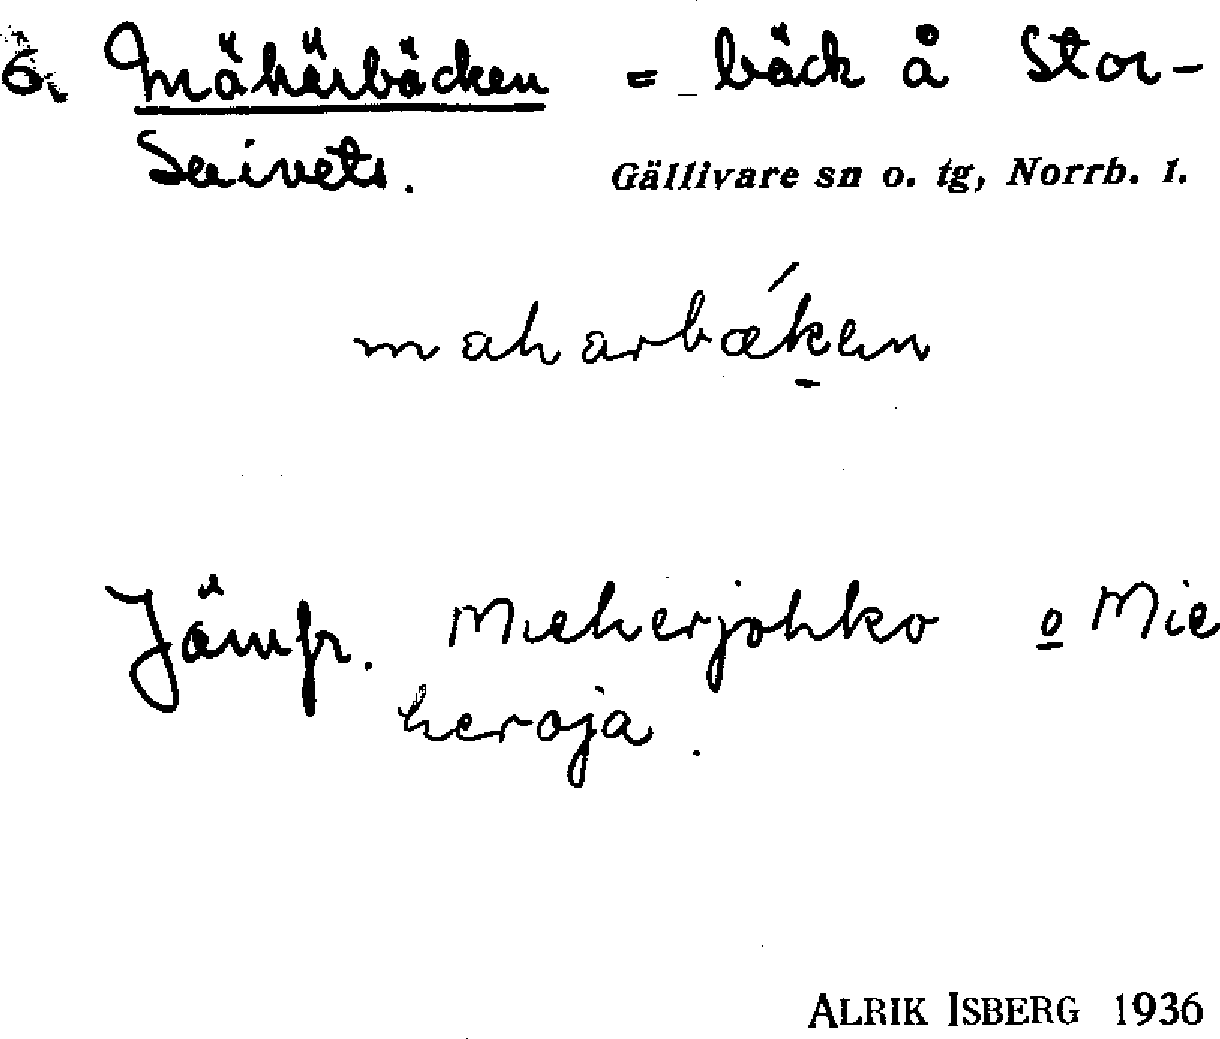 6. Mähärbäcken = bäck å Stor-
Saivets.
Gällivare sn o. tg, Norrb. l.
maharbǽken
Jämfr. Mieherjohko o Mie
heroja.
ALRIK ISBERG 1936